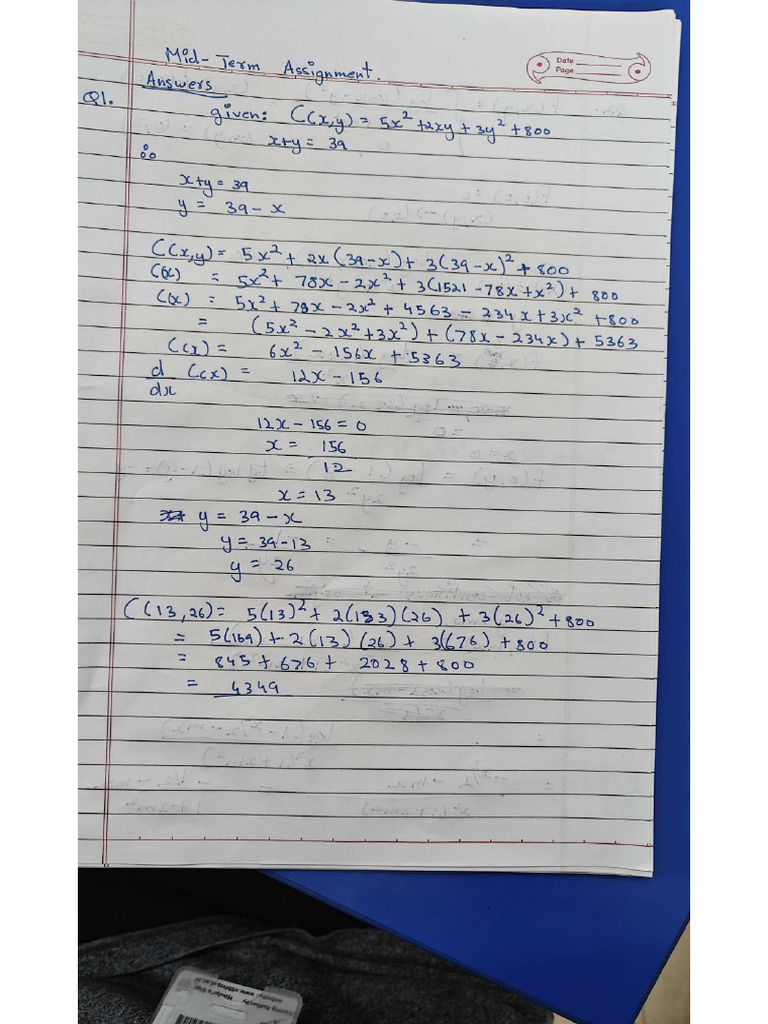 Mid-Term Assignment.
Date
Page
Answers
Q1.
given: C(x,y) = 5x² + 2xy + 3y² + 800
x+y = 39
∴
x+y = 39
y = 39 - x
C(x,y) = 5x² + 2x(39-x) + 3(39-x)² + 800
C(x) = 5x² + 78x - 2x² + 3(1521 - 78x + x²) + 800
C(x) = 5x² + 78x - 2x² + 4563 - 234x + 3x² + 800
= (5x² - 2x² + 3x²) + (78x - 234x) + 5363
C(x) = 6x² - 156x + 5363
d/dx C(x) = 12x - 156
12x - 156 = 0
x = 156/12
x = 13
y = 39 - x
y = 39 - 13
y = 26
C(13,26) = 5(13)² + 2(133)(26) + 3(26)² + 800
= 5(169) + 2(13)(26) + 3(676) + 800
= 845 + 676 + 2028 + 800
= 4349